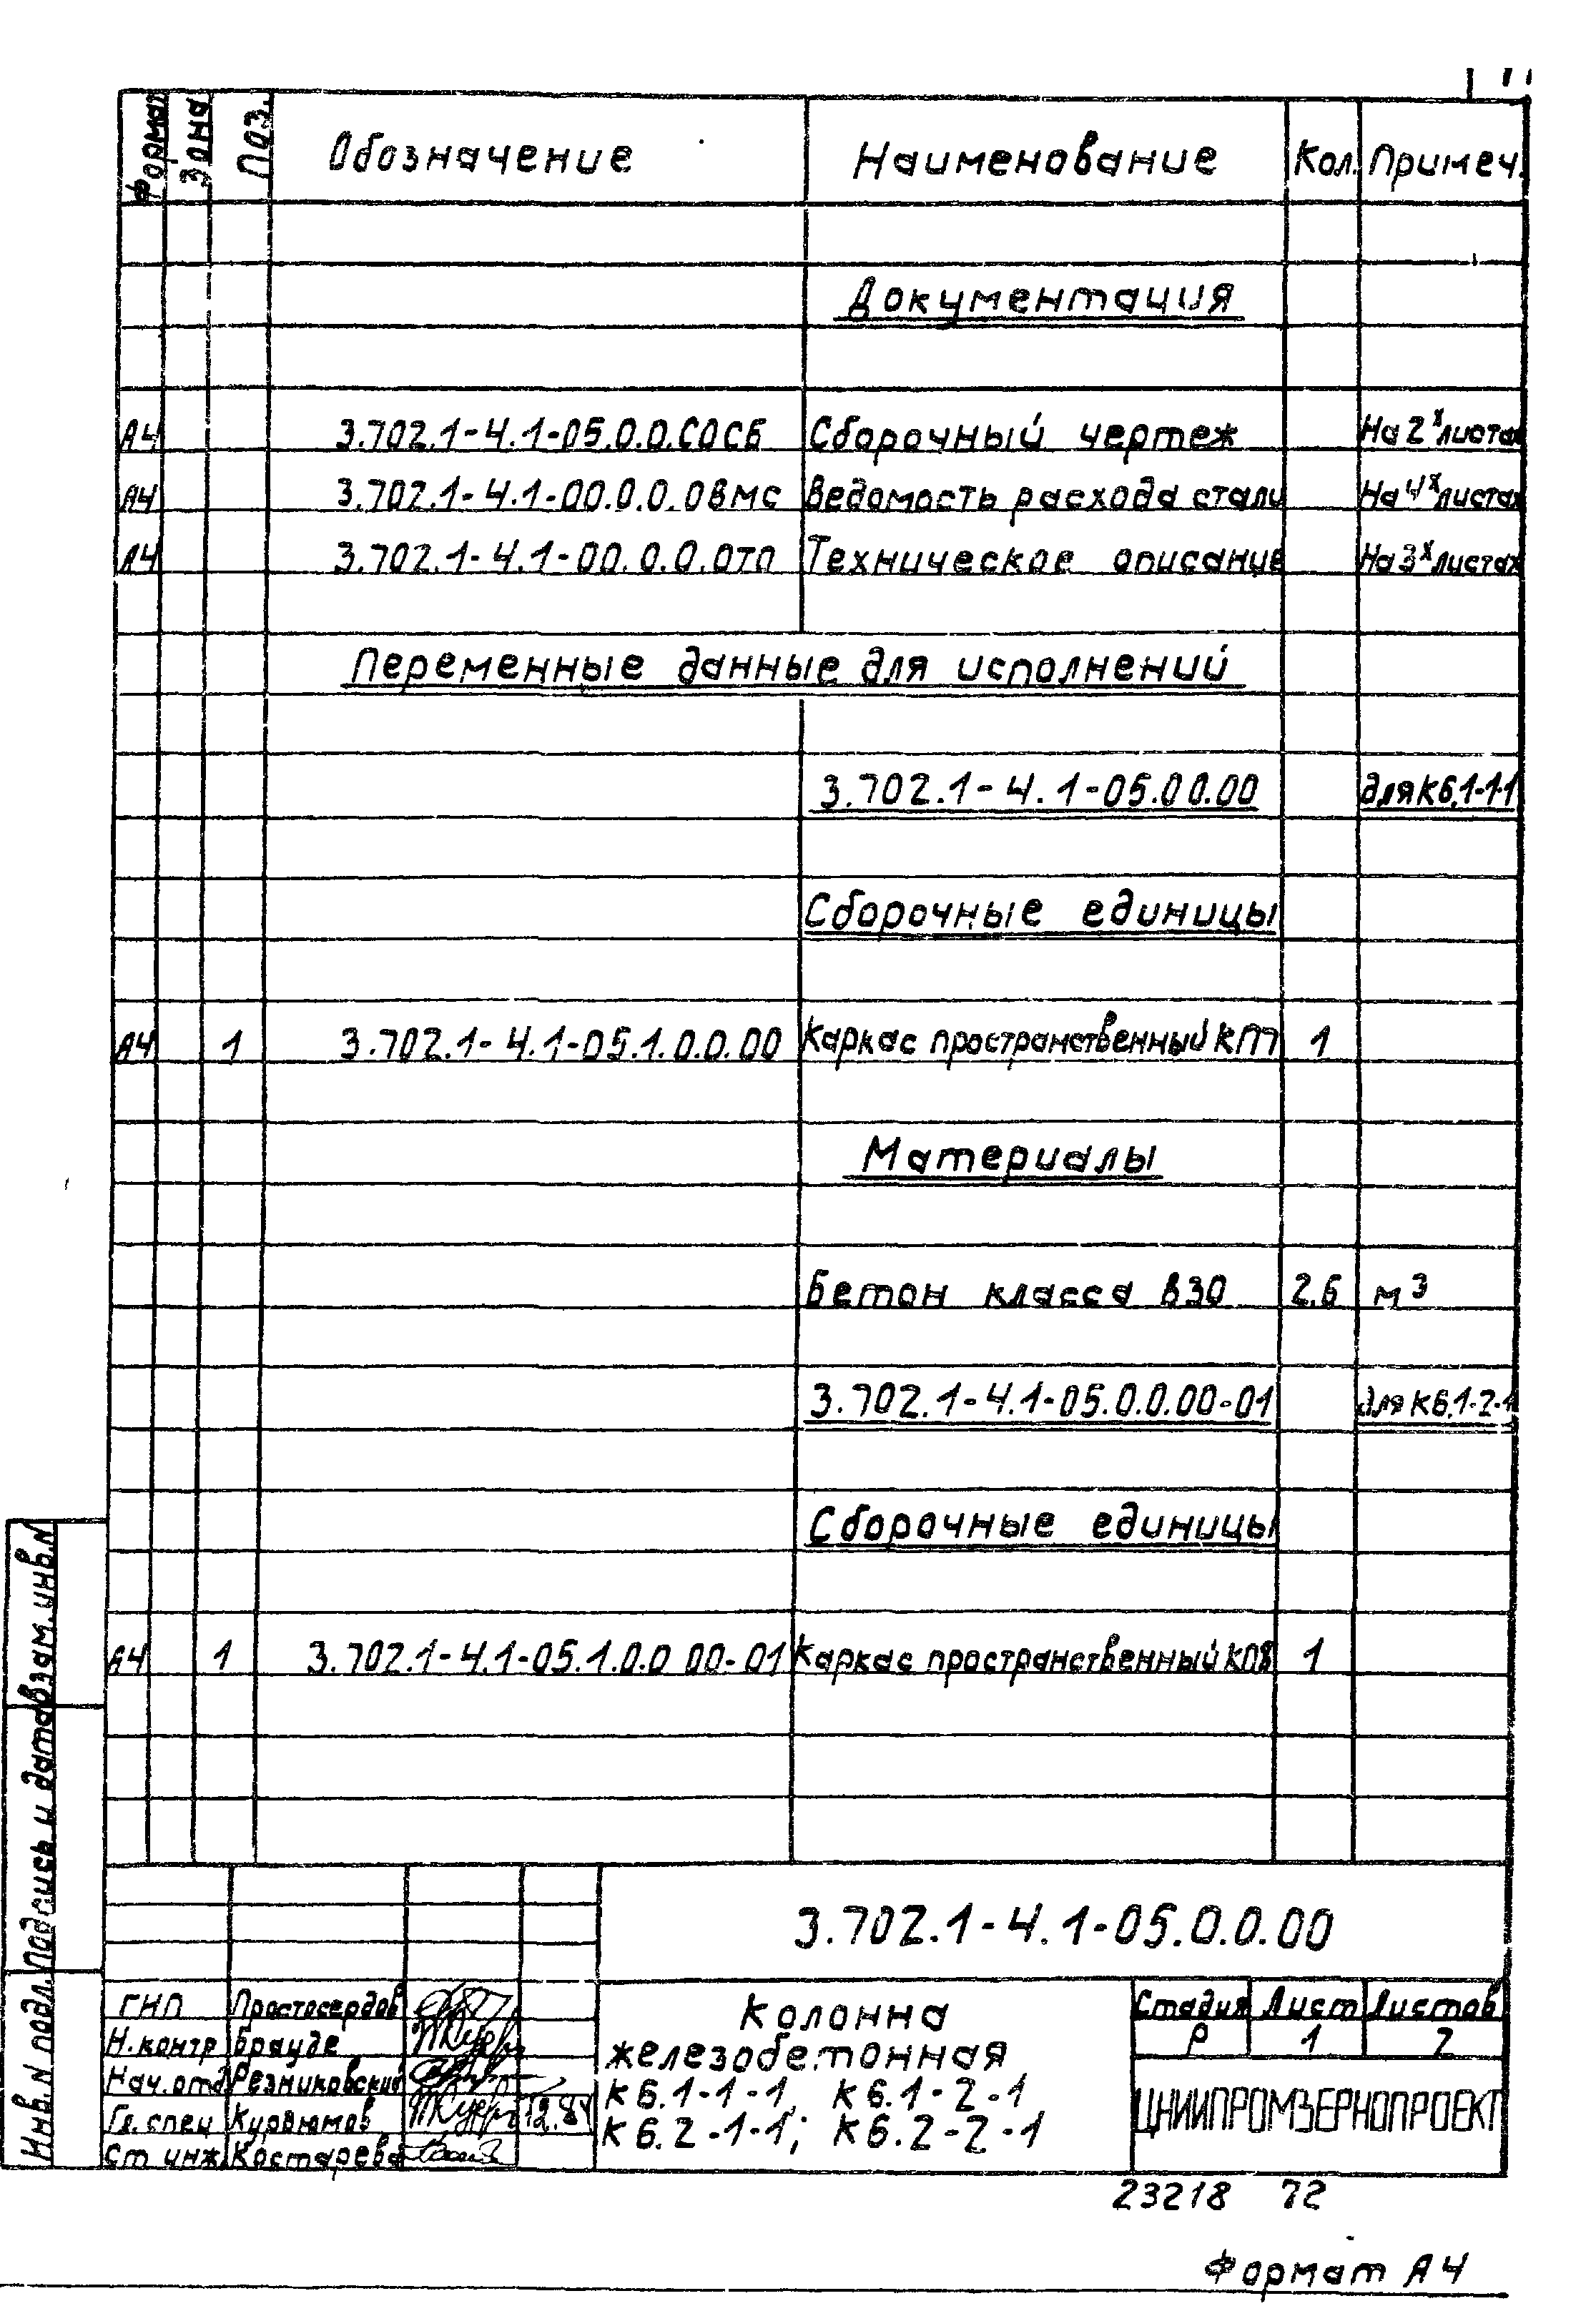 Формат Зона Поз. Обозначение Наименование Кол. Примеч.
Документация
А4 3.702.1-4.1-05.0.0.С0СБ Сборочный чертеж На 2х листах
А4 3.702.1-4.1-00.0.0.0ВМС Ведомость расхода стали На 4х листах
А4 3.702.1-4.1-00.0.0.0ТП Техническое описание На 3х листах
Переменные данные для исполнений
3.702.1-4.1-05.00.00 для К6.1-1-1
Сборочные единицы
А4 1 3.702.1-4.1-05.1.0.0.00 Каркас пространственный КП7 1
Материалы
Бетон класса В30 2.6 м³
3.702.1-4.1-05.0.0.00-01 для К6.1-2-1
Сборочные единицы
А4 1 3.702.1-4.1-05.1.0.0 00-01 Каркас пространственный КП8 1
Взам. инв. N
Подпись и дата
Инв. N подл.
3.702.1-4.1-05.0.0.00
ГНП Простосердов
Н.контр Брауде
Нач.отд Резниковский
Гл. спец Курвюмов 12.84
Ст инж. Костарева
Колонна
железобетонная
К6.1-1-1, К6.1-2-1
К6.2-1-1; К6.2-2-1
Стадия Лист Листов
Р 1 2
ЦНИИПРОМЗЕРНОПРОЕКТ
23218 72
Формат А4